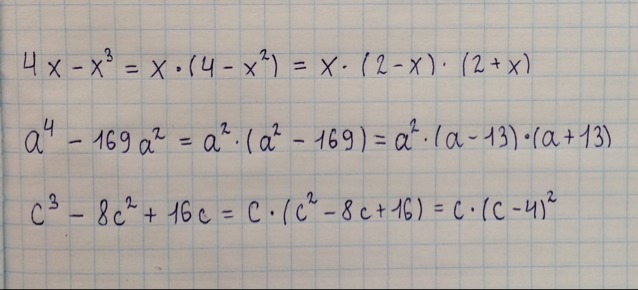 4x - x³ = x · (4 - x²) = x · (2 - x) · (2 + x)
a⁴ - 169a² = a² · (a² - 169) = a² · (a - 13) · (a + 13)
c³ - 8c² + 16c = c · (c² - 8c + 16) = c · (c - 4)²